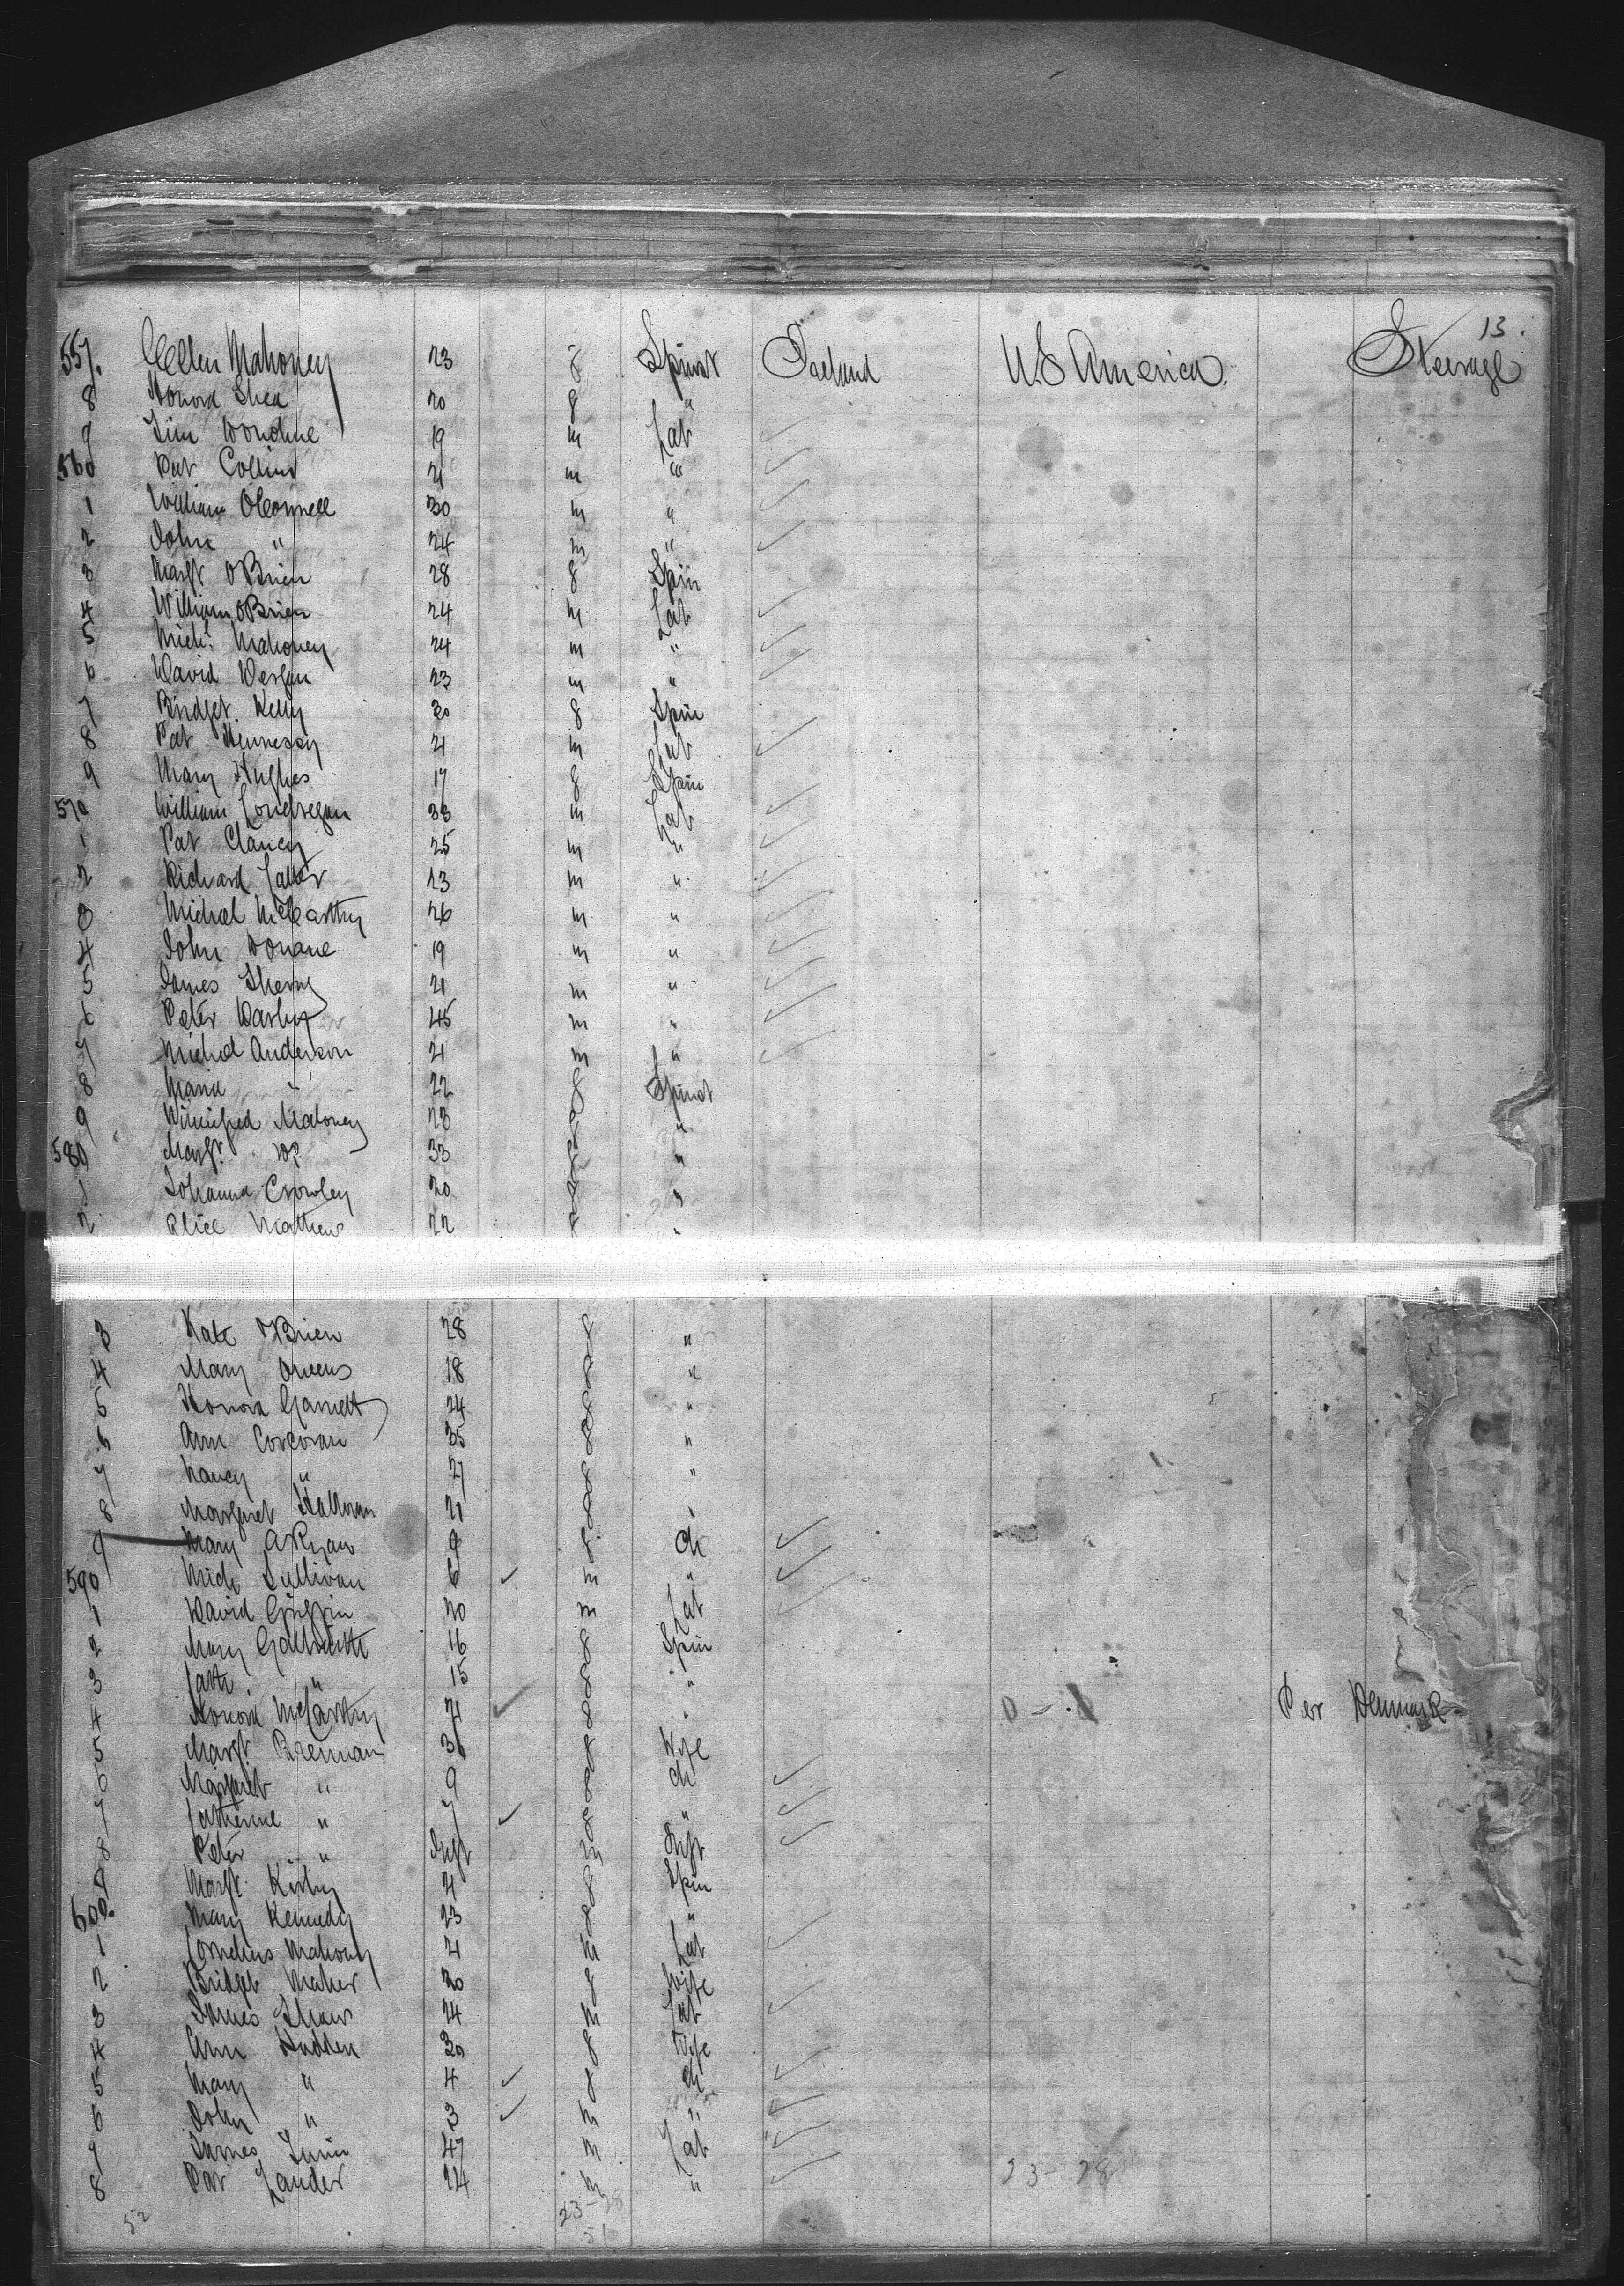 13.
557. Ellen Mahoney 23 f Spinst Ireland U.S America. Steerage
8 Honora Shea 20 f "
9 Tim Donohue 19 m Lab
560 Pat Collins 21 m "
1 William OConnell 30 m "
2 John " 24 m "
3 Margt OBrien 28 f Spin
4 William OBrien 24 m Lab
5 Michl Mahoney 24 m "
6 David 23 m "
7 Bridget Kelly 30 f Spin
8 Pat Hennessy 21 m Lab
9 Mary Hughes 17 f Spin
570 William Londregan 33 m Lab
1 Pat Clancy 25 m "
2 Richard 23 m "
3 Michael McCarthy 26 m "
4 John 19 m "
5 James 21 m "
6 Peter Darby 45 m "
7 Michael Anderson 21 m "
8 Maria " 22 f Spinst
9 Winnifred Maloney 28 f "
580 Margt Do 33 f "
1 Johanna Crowley 20 f "
2 Alice Mathew 22 f "
3 Kate OBrien 28 f "
4 Mary Owens 18 f "
5 Honora Garrett 24 f "
6 Ann Corcoran 35 f "
7 Nancy " 27 f "
8 Margaret Halloran 21 f "
9 Mary A Ryan 9 f Ch
590 Mich Sullivan 6 m "
1 David Griffin 20 m Lab
2 Mary Galbraith 16 f Spin
3 Cath " 15 f "
4 Honora McCarthy 21 f " Per Denmark
5 Margt Brennan 36 f Wife
6 Margaret " 9 f Ch
7 Catherine " 7 f "
8 Peter " Inft m Inft
9 Margt Kirby 21 f Spin
600. Mary Kennedy 23 f "
1 Cornelius Mahony 21 m Lab
2 Bridget Maher 30 f Wife
3 James Shaw 24 m Lab
4 Ann Hadden 30 f Wife
5 Mary " 4 f Ch
6 John " 3 m "
7 James 47 m Lab
8 Pat Lauder 24 m "
23-28
52
23-28
51